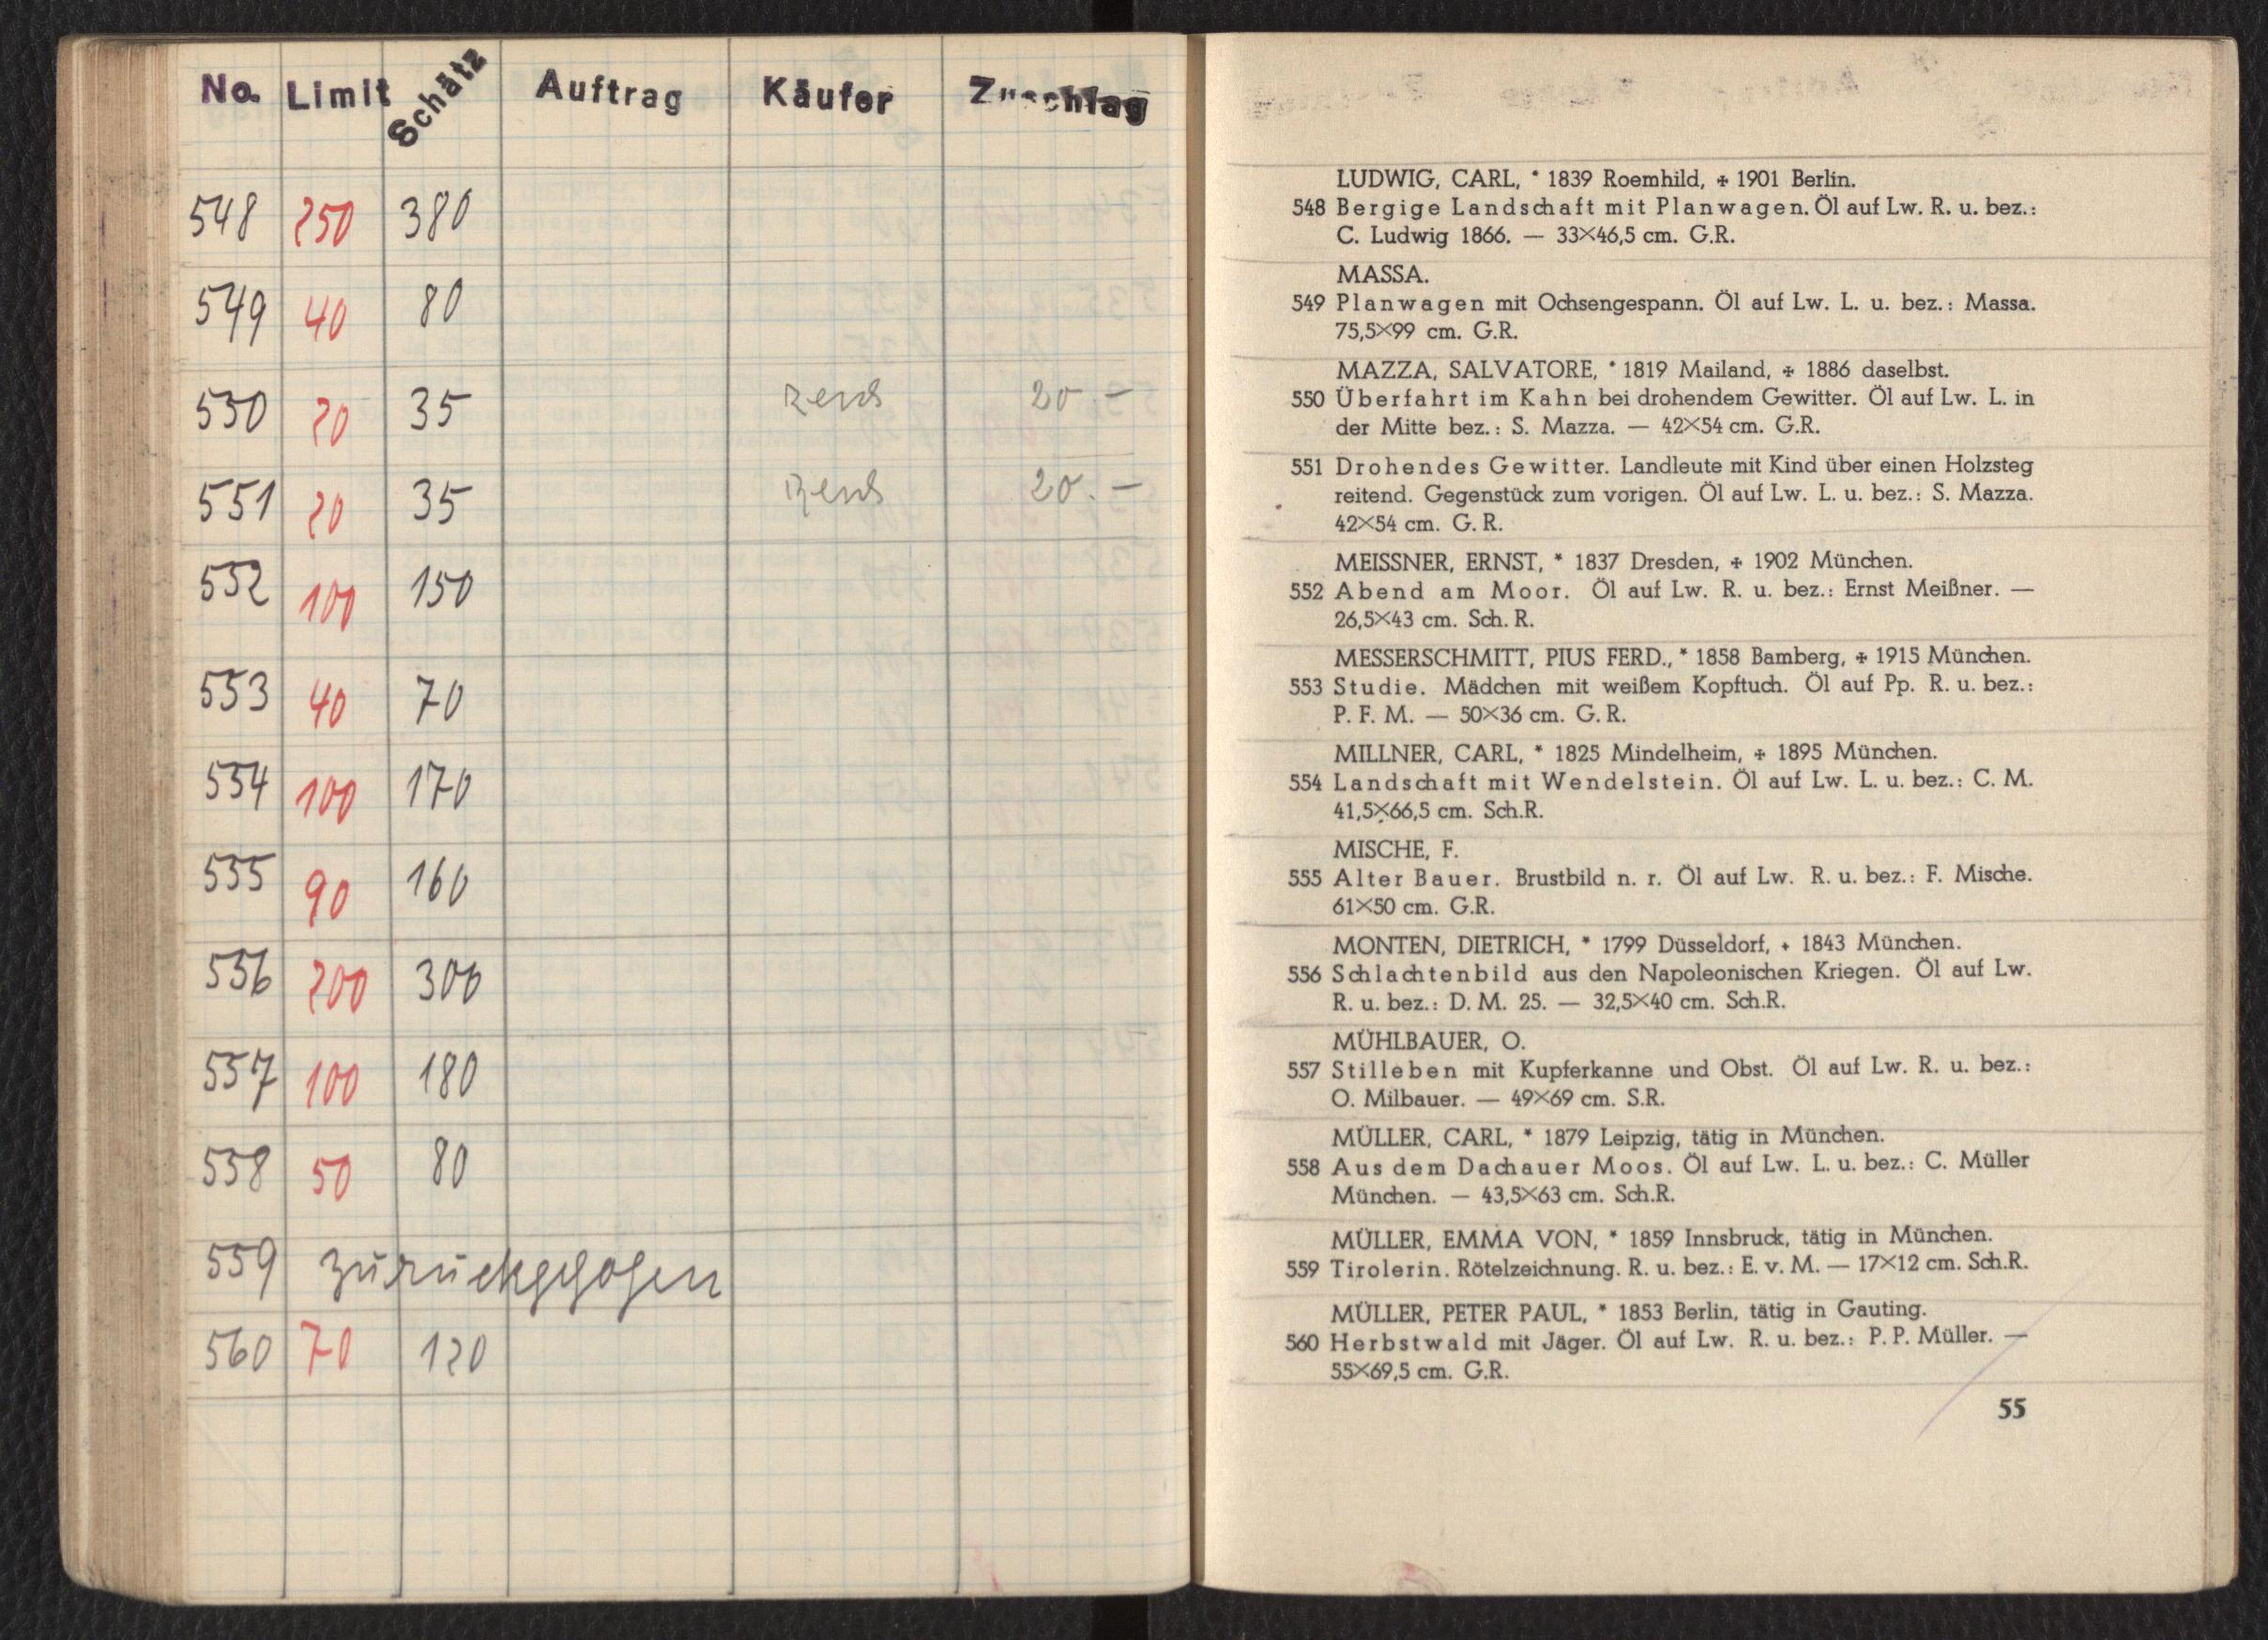 No. Limit Schätz Auftrag Käufer Zuschlag
548 250 380
549 40 80
550 20 35 20.-
551 20 35 20.-
552 100 150
553 40 70
554 100 170
555 90 160
556 200 300
557 100 180
558 50 80
559 zurückgezogen
560 70 120
LUDWIG, CARL, * 1839 Roemhild, ✠ 1901 Berlin.
548 Bergige Landschaft mit Planwagen. Öl auf Lw. R. u. bez.:
C. Ludwig 1866. — 33×46,5 cm. G.R.
MASSA.
549 Planwagen mit Ochsengespann. Öl auf Lw. L. u. bez.: Massa.
75,5×99 cm. G.R.
MAZZA, SALVATORE, * 1819 Mailand, ✠ 1886 daselbst.
550 Überfahrt im Kahn bei drohendem Gewitter. Öl auf Lw. L. in
der Mitte bez.: S. Mazza. — 42×54 cm. G.R.
551 Drohendes Gewitter. Landleute mit Kind über einen Holzsteg
reitend. Gegenstück zum vorigen. Öl auf Lw. L. u. bez.: S. Mazza.
42×54 cm. G. R.
MEISSNER, ERNST, * 1837 Dresden, ✠ 1902 München.
552 Abend am Moor. Öl auf Lw. R. u. bez.: Ernst Meißner. —
26,5×43 cm. Sch. R.
MESSERSCHMITT, PIUS FERD., * 1858 Bamberg, ✠ 1915 München.
553 Studie. Mädchen mit weißem Kopftuch. Öl auf Pp. R. u. bez.:
P. F. M. — 50×36 cm. G. R.
MILLNER, CARL, * 1825 Mindelheim, ✠ 1895 München.
554 Landschaft mit Wendelstein. Öl auf Lw. L. u. bez.: C. M.
41,5×66,5 cm. Sch.R.
MISCHE, F.
555 Alter Bauer. Brustbild n. r. Öl auf Lw. R. u. bez.: F. Mische.
61×50 cm. G.R.
MONTEN, DIETRICH, * 1799 Düsseldorf, ✠ 1843 München.
556 Schlachtenbild aus den Napoleonischen Kriegen. Öl auf Lw.
R. u. bez.: D. M. 25. — 32,5×40 cm. Sch.R.
MÜHLBAUER, O.
557 Stilleben mit Kupferkanne und Obst. Öl auf Lw. R. u. bez.:
O. Milbauer. — 49×69 cm. S.R.
MÜLLER, CARL, * 1879 Leipzig, tätig in München.
558 Aus dem Dachauer Moos. Öl auf Lw. L. u. bez.: C. Müller
München. — 43,5×63 cm. Sch.R.
MÜLLER, EMMA VON, * 1859 Innsbruck, tätig in München.
559 Tirolerin. Rötelzeichnung. R. u. bez.: E. v. M. — 17×12 cm. Sch.R.
MÜLLER, PETER PAUL, * 1853 Berlin, tätig in Gauting.
560 Herbstwald mit Jäger. Öl auf Lw. R. u. bez.: P. P. Müller. —
55×69,5 cm. G.R.
55